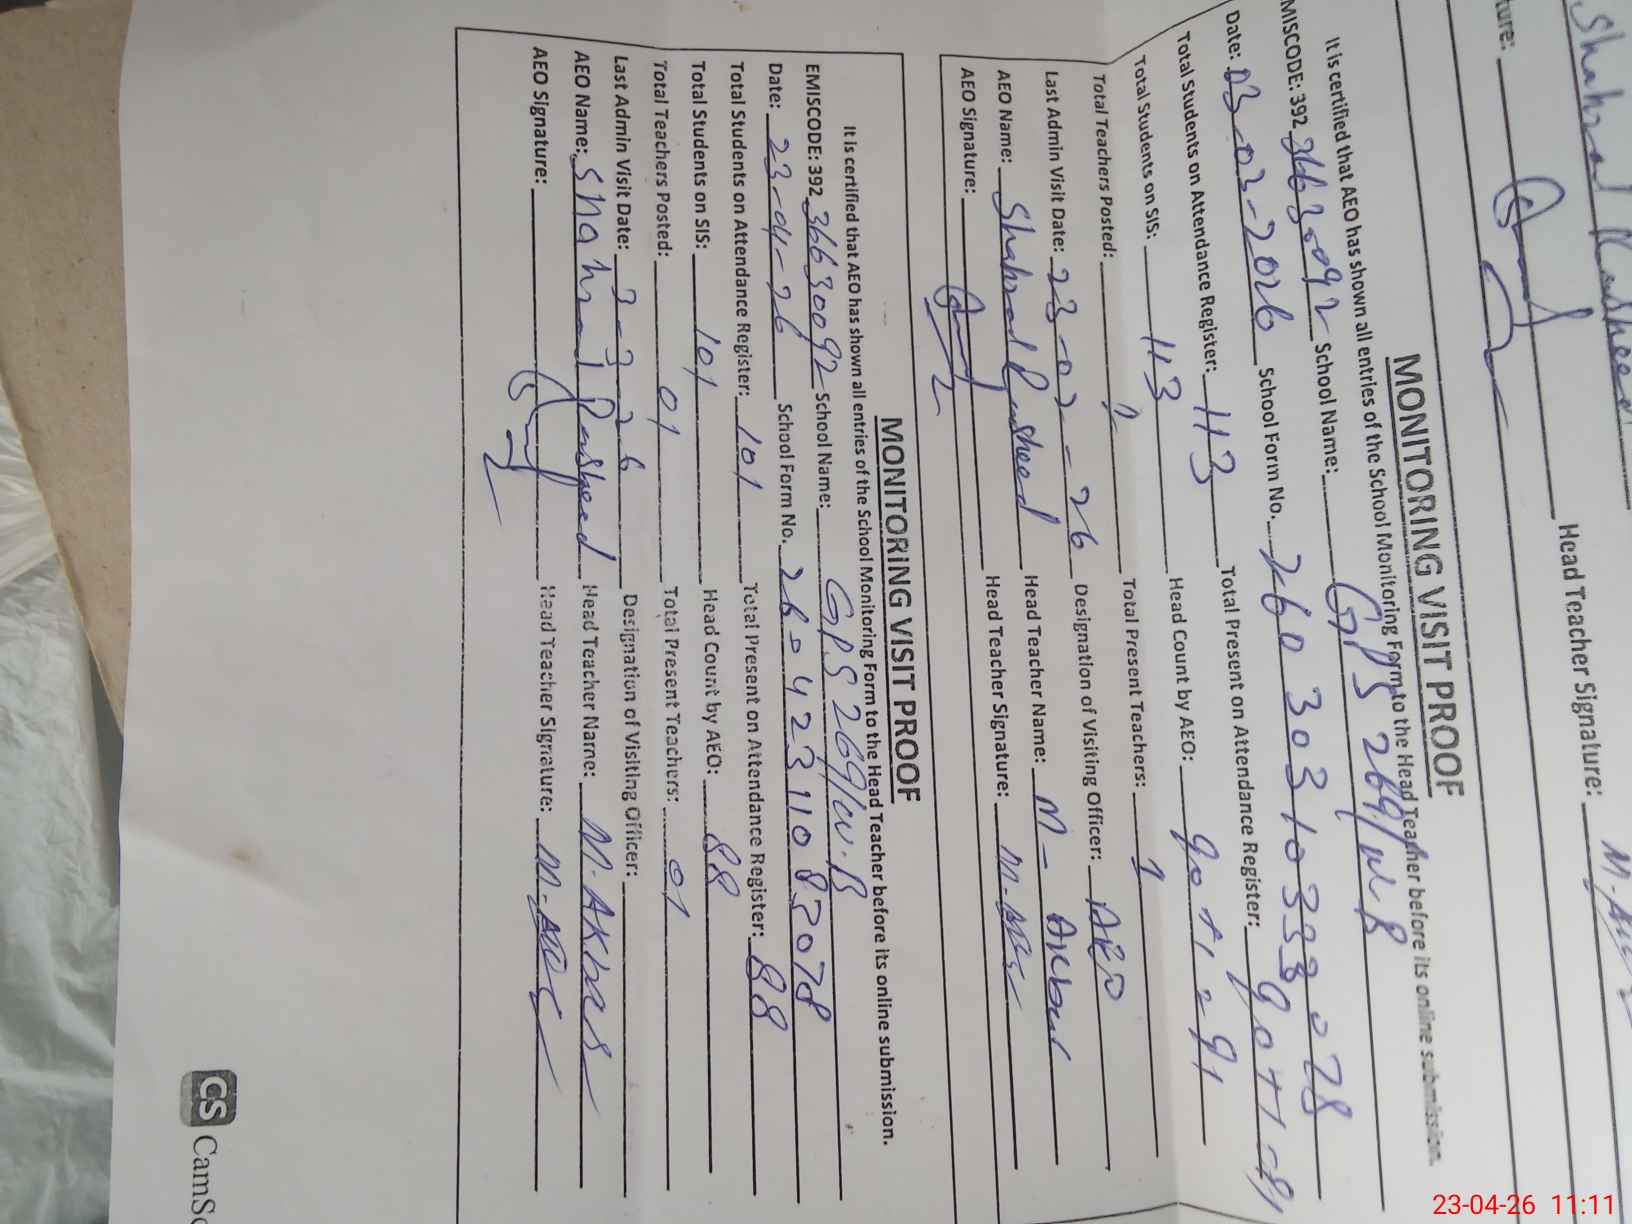 Shahzad Rasheed
ture: Head Teacher Signature:
MONITORING VISIT PROOF
It is certified that AEO has shown all entries of the School Monitoring Form to the Head Teacher before its online submission.
MISCODE: 392 36630092 School Name: GPS 269/W.B
Date: 03-03-2026 School Form No. 260303103339078
Total Students on Attendance Register: 113 Total Present on Attendance Register: 90+1=91
Total Students on SIS: 113 Head Count by AEO: 90+1=91
Total Teachers Posted: Total Present Teachers: 1
Last Admin Visit Date: 23-02-26 Designation of Visiting Officer: AEO
AEO Name: Shahzad Rasheed Head Teacher Name: M- Akbar
AEO Signature: Head Teacher Signature:
MONITORING VISIT PROOF
It is certified that AEO has shown all entries of the School Monitoring Form to the Head Teacher before its online submission.
EMISCODE: 392 36630092 School Name: GPS 269/W.B
Date: 23-04-26 School Form No. 260423110837078
Total Students on Attendance Register: 101 Total Present on Attendance Register: 88
Total Students on SIS: 101 Head Count by AEO: 88
Total Teachers Posted: 01 Total Present Teachers: 01
Last Admin Visit Date: 3-3-26 Designation of Visiting Officer:
AEO Name: Shahzad Rasheed Head Teacher Name: M. AKbar
AEO Signature: Head Teacher Signature:
CS CamSc
23-04-26 11:11